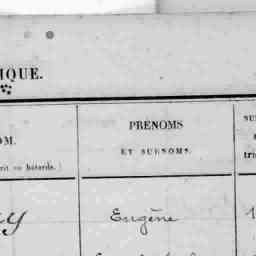 IQUE.
OM.
rit en bâtarde.)
PRÉNOMS
ET SURNOMS.
SU
tri
Eugène